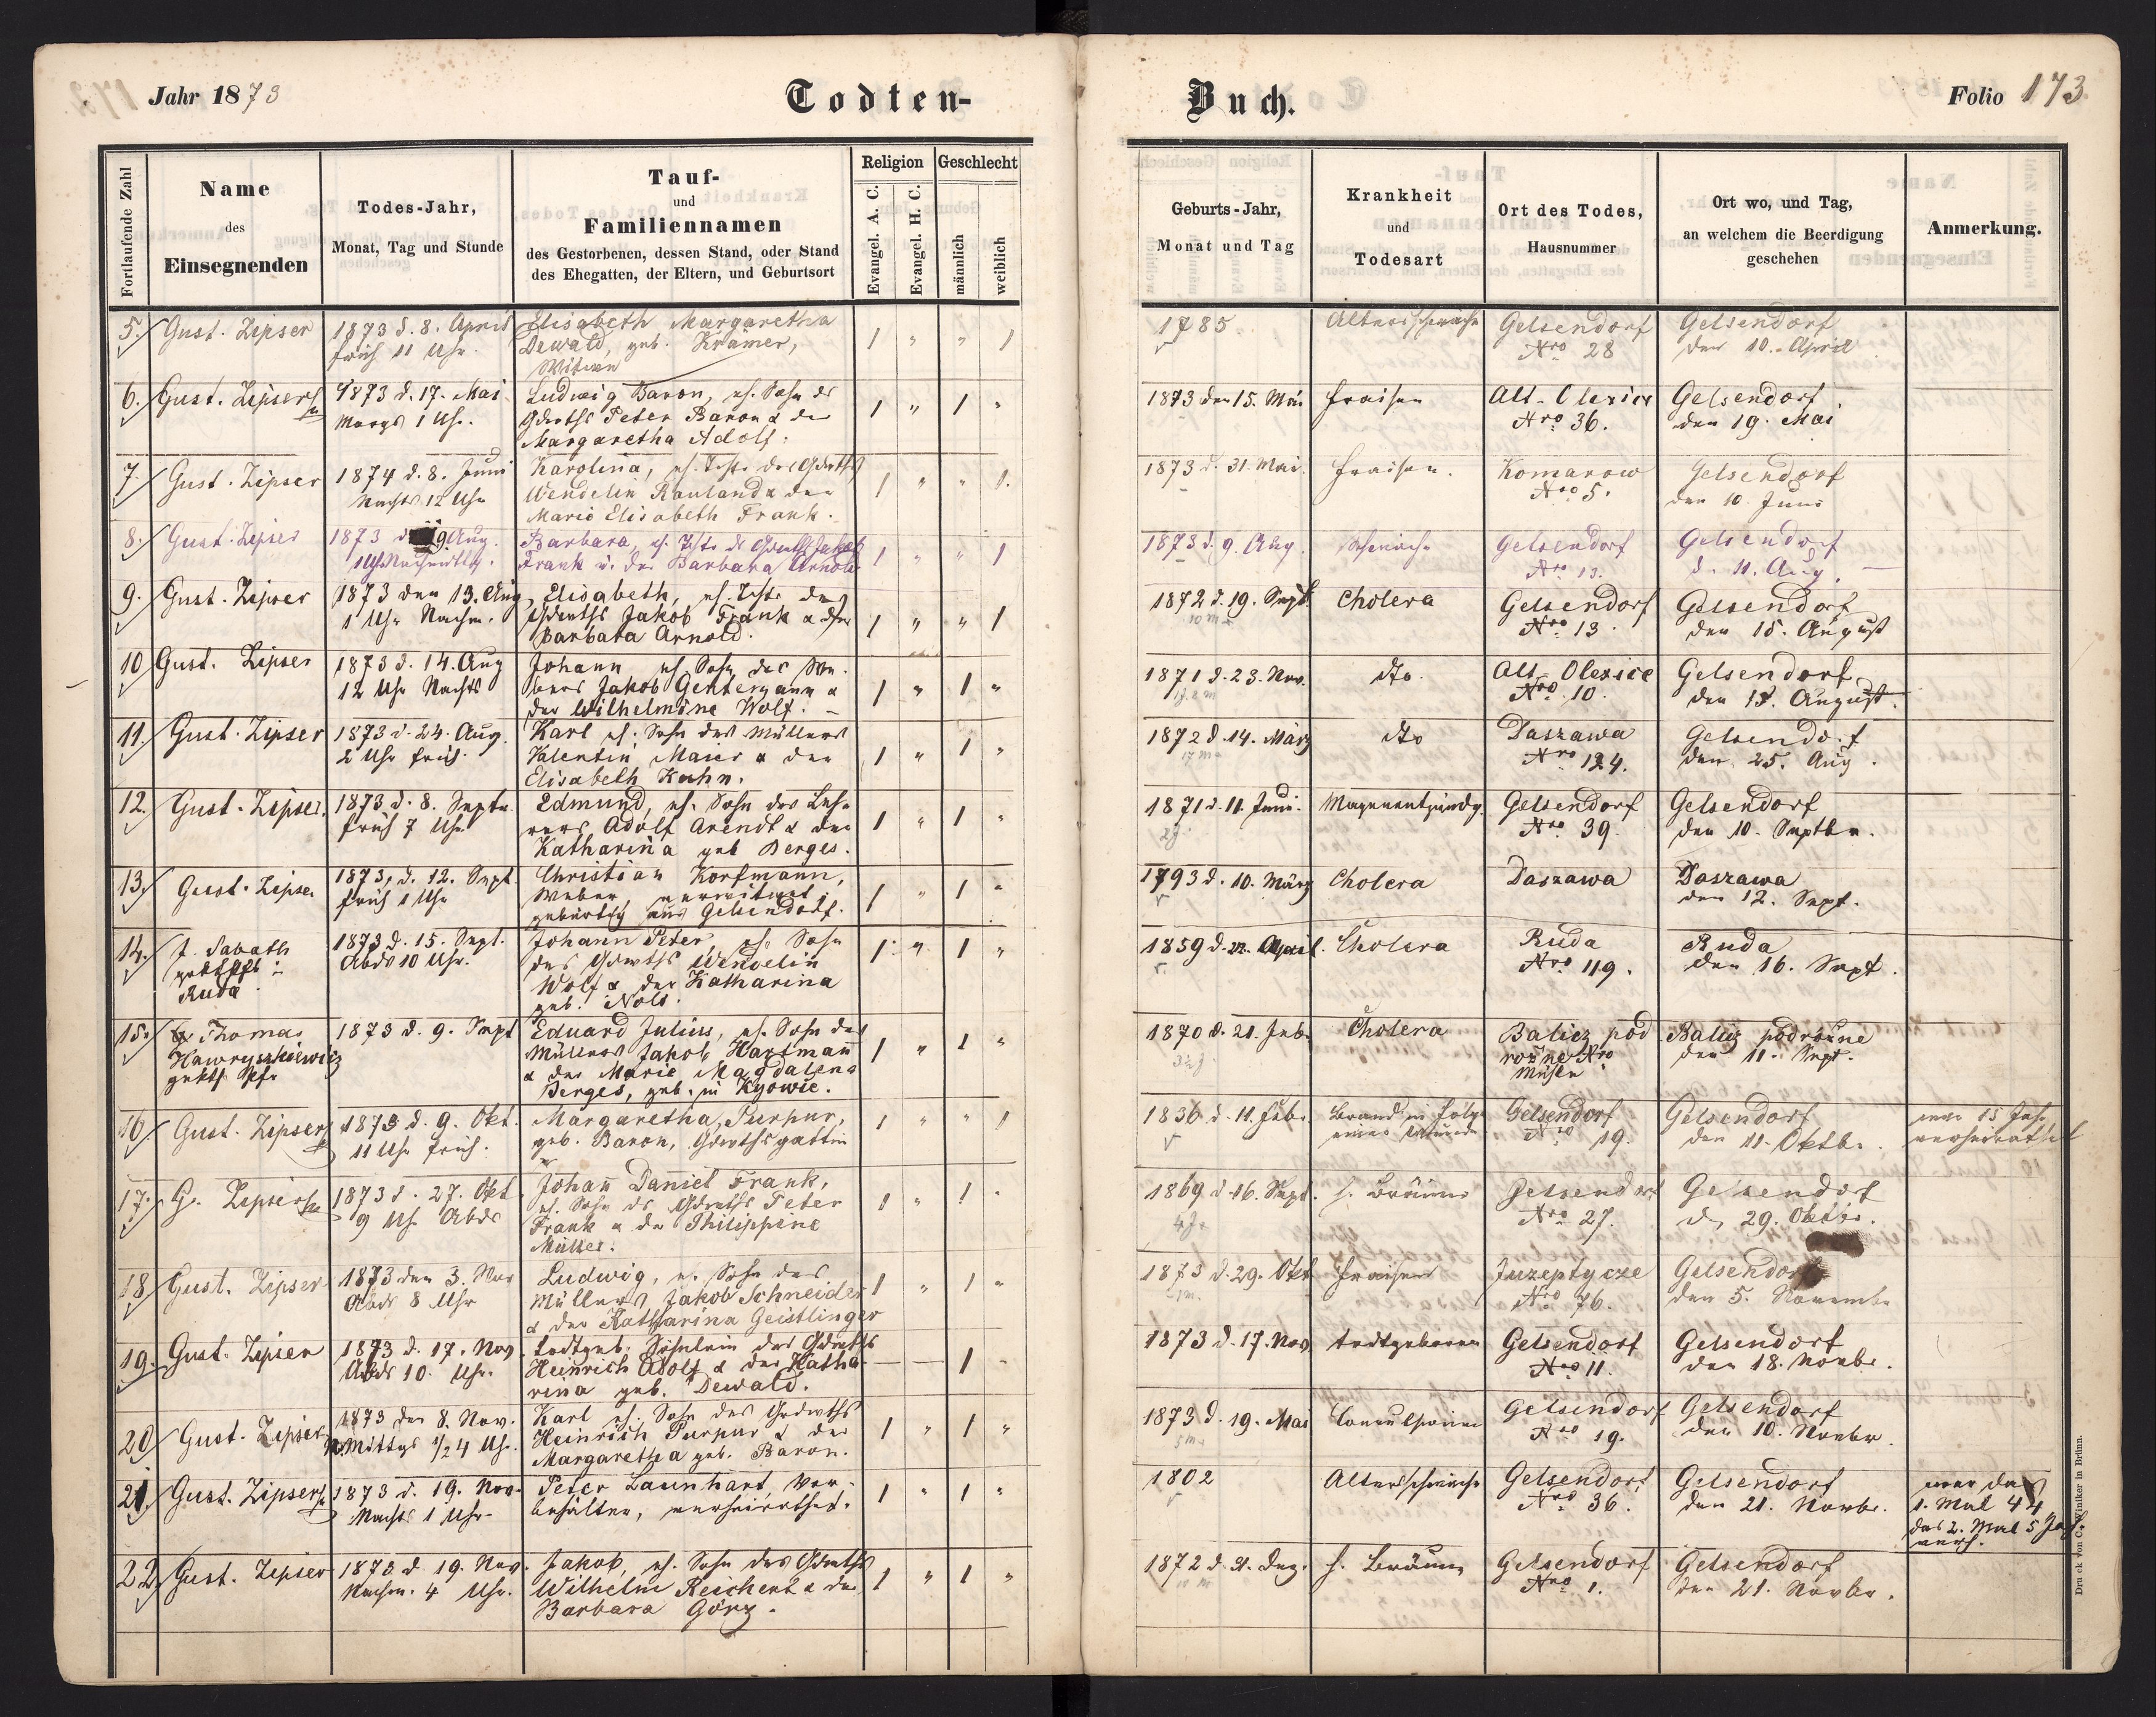 Jahr 1873
Todten-
Buch.
Folio 173
Fortlaufende Zahl
Name
des
Einsegnenden
Todes-Jahr,
Monat, Tag und Stunde
Tauf-
und
Familiennamen
des Gestorbenen, dessen Stand, oder Stand
des Ehegatten, der Eltern, und Geburtsort
Religion
Evangel. A. C.
Evangel. H. C.
Geschlecht
männlich
weiblich
Geburts-Jahr,
Monat und Tag
Krankheit
und
Todesart
Ort des Todes,
Hausnummer
Ort wo, und Tag,
an welchem die Beerdigung
geschehen
Anmerkung.
5. Gust. Zipser
1873 d. 8. April
früh 11 Uhr.
Elisabeth Margaretha
Dewald, geb. Krämer,
Witwe
1 " " 1
1785
Altersschwäche
Gelsendorf
Nro 28
Gelsendorf
den 10. April
6. Gust. Zipser
1873 d. 17. Mai
Morgs 1 Uhr.
Ludwig Baron, eh. Sohn ds
Grdwths Peter Baron & der
Margaretha Adolf.
1 " 1 "
1873 den 15. Mai
Fraisen
Alt-Olexice
Nro 36.
Gelsendorf
den 19. Mai
7. Gust. Zipser
1874 d. 8. Juni
Nachts 12 Uhr
Karolina, eh. Tochtr des Grdwths
Wendelin Rauland & der
Marie Elisabeth Frank.
1 " " 1.
1873 d. 31. Mai.
Fraisen.
Komarow
Nro 5.
Gelsendorf
den 10. Juni
8. Gust. Zipser
1873 d. 9 Aug.
1 Uhr Nachmittg.
Barbara, eh. Tchtr ds Grdwths Jakob
Frank u. der Barbara Arnold.
1 " " 1
1873 d. 9. Aug.
Schwäche
Gelsendorf
Nro 13.
Gelsendorf
d. 11. Aug.
9. Gust. Zipser
1873 den 13. Aug.
1 Uhr Nachm.
Elisabeth, eh. Tchtr des
Grdwths Jakob Frank & der
Barbara Arnold.
1 " " 1
1872 d. 19. Sept.
10 m
Cholera
Gelsendorf
Nro 13.
Gelsendorf
den 15. August
10 Gust. Zipser
1873 d. 14. Aug
12 Uhr Nachts
Johann eh. Sohn des We-
bers Jakob Gentermann &
der Wilhelmine Wolf.
1 " 1 "
1871 d. 23. Nov.
dto.
Alt-Olexice
Nro 10.
Gelsendorf
den 15. August.
11. Gust. Zipser
1873 d. 24. Aug.
2 Uhr früh.
Karl eh. Sohn des Müllers
Valentin Maier & der
Elisabeth Kuhn.
1 " 1 "
1872 d. 14. März
17 m
dto
Daszawa
Nro 124.
Gelsendorf
den 25. Aug.
12. Gust. Zipser.
1873 d. 8. Septr.
früh 7 Uhr
Edmund, eh. Sohn des Leh-
rers Adolf Arendt & der
Katharina geb Berges.
1 " 1 "
1871 d. 11. Juni.
2 j
Magenentzündg.
Gelsendorf
Nro 39.
Gelsendorf
den 10. Septbr.
13. Gust. Zipser
1873, d. 12. Sept
früh 1 Uhr
Christian Korfmann,
Weber, verwitwet,
gebürtig aus Gelsendorf.
1 " 1 "
1793 d. 10. März
Cholera
Daszawa
Daszawa
den 12. Sept.
14. J. Sabath
Ruda
1873 d. 15. Sept.
Abds 10 Uhr.
Johann Peter, eh. Sohn
des Grdwths Wendelin
Wolf & der Katharina
geb. Nold.
1 " 1 "
1859 d. 22. April.
Cholera
Ruda
Nro 119.
Ruda
den 16. Sept.
15. Thomas
Hawryszkiewicz
1873 d. 9. Sept
Eduard Julius, eh. Sohn des
Müllers Jakob Hartmann
& der Marie Magdalena
Berges, geb. in Kyowie.
1 " 1 "
1870 d. 21. Febr
Cholera
Balicz pod
rożne Nro
Mühle
Balicz podrożne
den 11. Sept.
16 Gust. Zipser
1873 d. 9. Okt.
11 Uhr früh.
Margaretha Purpur,
geb. Baron, Grdwthsgattin
1 " " 1
1836 d. 11. Febr.
Brand in Folge
einer Wunde
Gelsendorf
Nro 19.
Gelsendorf
den 11. Oktbr.
war 15 Jahr
verheirathet
17. G. Zipser
1873 d. 27. Okt
9 Uhr Abds
Johan̄ Daniel Frank,
eh. Sohn ds Grdwths Peter
Frank & der Philippine
Müller.
1 " 1 "
1869 d. 16. Sept.
4 Jr
h. Bräune
Gelsendorf
Nro 27.
Gelsendorf
d. 29. Oktbr.
18 Gust. Zipser
1873 den 3. Nov
Abds 8 Uhr
Ludwig, eh. Sohn des
Müllers Jakob Schneider
& der Katharina Geistlinger
1 " 1 "
1873 d. 29. Okt
Fraisen
Juzeptycze
Nro 76.
Gelsendorf
den 5. Novembr
19. Gust. Zipser
1873 d. 17. Nov.
Abds 10. Uhr.
Todtgeb. Söhnlein des Grdwths
Heinrich Adolf & der Katha-
rina geb. Dewald.
— — 1 "
1873 d. 17. Nov
todtgeboren
Gelsendorf
Nro 11.
Gelsendorf
den 18. Novbr.
20 Gust. Zipser
1873 den 8. Nov.
N.Mittgs 1/2 4 Uhr.
Karl eh. Sohn des Grdwths
Heinrich Purpur & der
Margaretha geb. Baron.
1 " 1 "
1873 d. 19. Mai
Convulsionen
Gelsendorf
Nro 19.
Gelsendorf
den 10. Novbr.
21. Gust. Zipser
1873 d. 19. Nov.
Nachts 1 Uhr.
Peter Launhart, Vor-
behälter, verheirathet.
1 " 1 "
1802
Altersschwäche
Gelsendorf
Nro 36.
Gelsendorf
den 21. Novbr.
war das
1. Mal 44
das 2. Mal 5 Jahr
verh.
22. Gust. Zipser
1873 d. 19. Nov.
Nachm. 4 Uhr.
Jakob, eh. Sohn des Grdwths
Wilhelm Reichert & der
Barbara Görz.
1 " 1 "
1872 d. 31. Dez.
10 m
h. Bräune
Gelsendorf
Nro 1.
Gelsendorf
den 21. Novbr.
Druck von C. Winiker in Brünn.